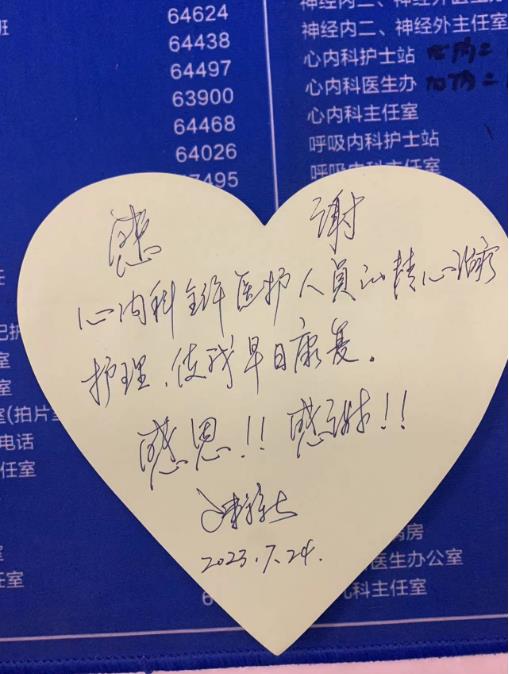 64624
64438
64497
63900
64468
64026
7495
神经内二、神经外医生
神经内二、神经外主任室
心内科护士站
心内科医生办
心内科主任室
呼吸内科护士站
呼吸内科主任室
感 谢
心内科全体医护人員的精心治疗
护理、使我早日康复。
感恩!! 感谢!!
2023.7.24.
任
记护
室
室
室(拍片室
电话
任室
室
任室
室
6
病房
医生办公室
科主任室